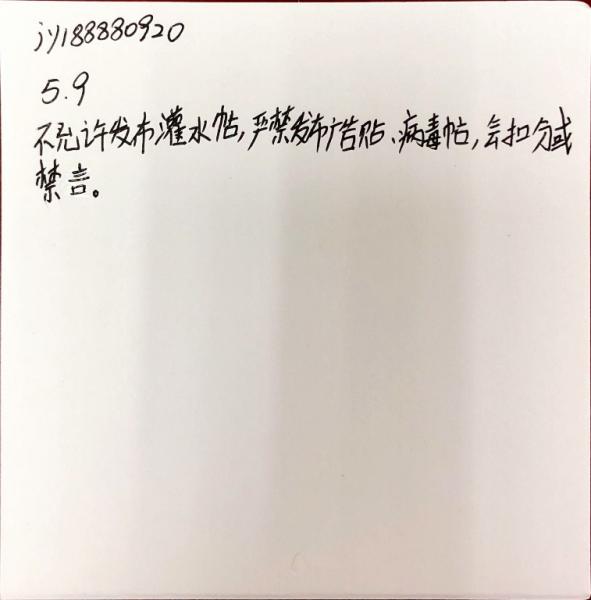 jy188880920
5.9
不允许发布灌水帖,严禁发布广告贴、病毒帖,会扣分或
禁言。